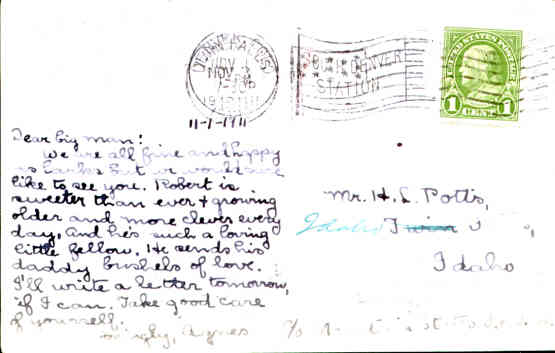 NOV
SOUTH DENVER
STATION
UNITED STATES POSTAGE
1 CENT 1
11-1-1911
Dear big man:
We are all fine and happy
as larks but we would sure
like to see you. Robert is
sweeter than ever & growing
older and more clever every
day, and he's such a loving
little fellow. He sends his
daddy bushels of love.
I'll write a letter tomorrow,
if I can. Take good care
of yourself.
Agnes
Mr. H. L. Potts,
Idaho
Idaho